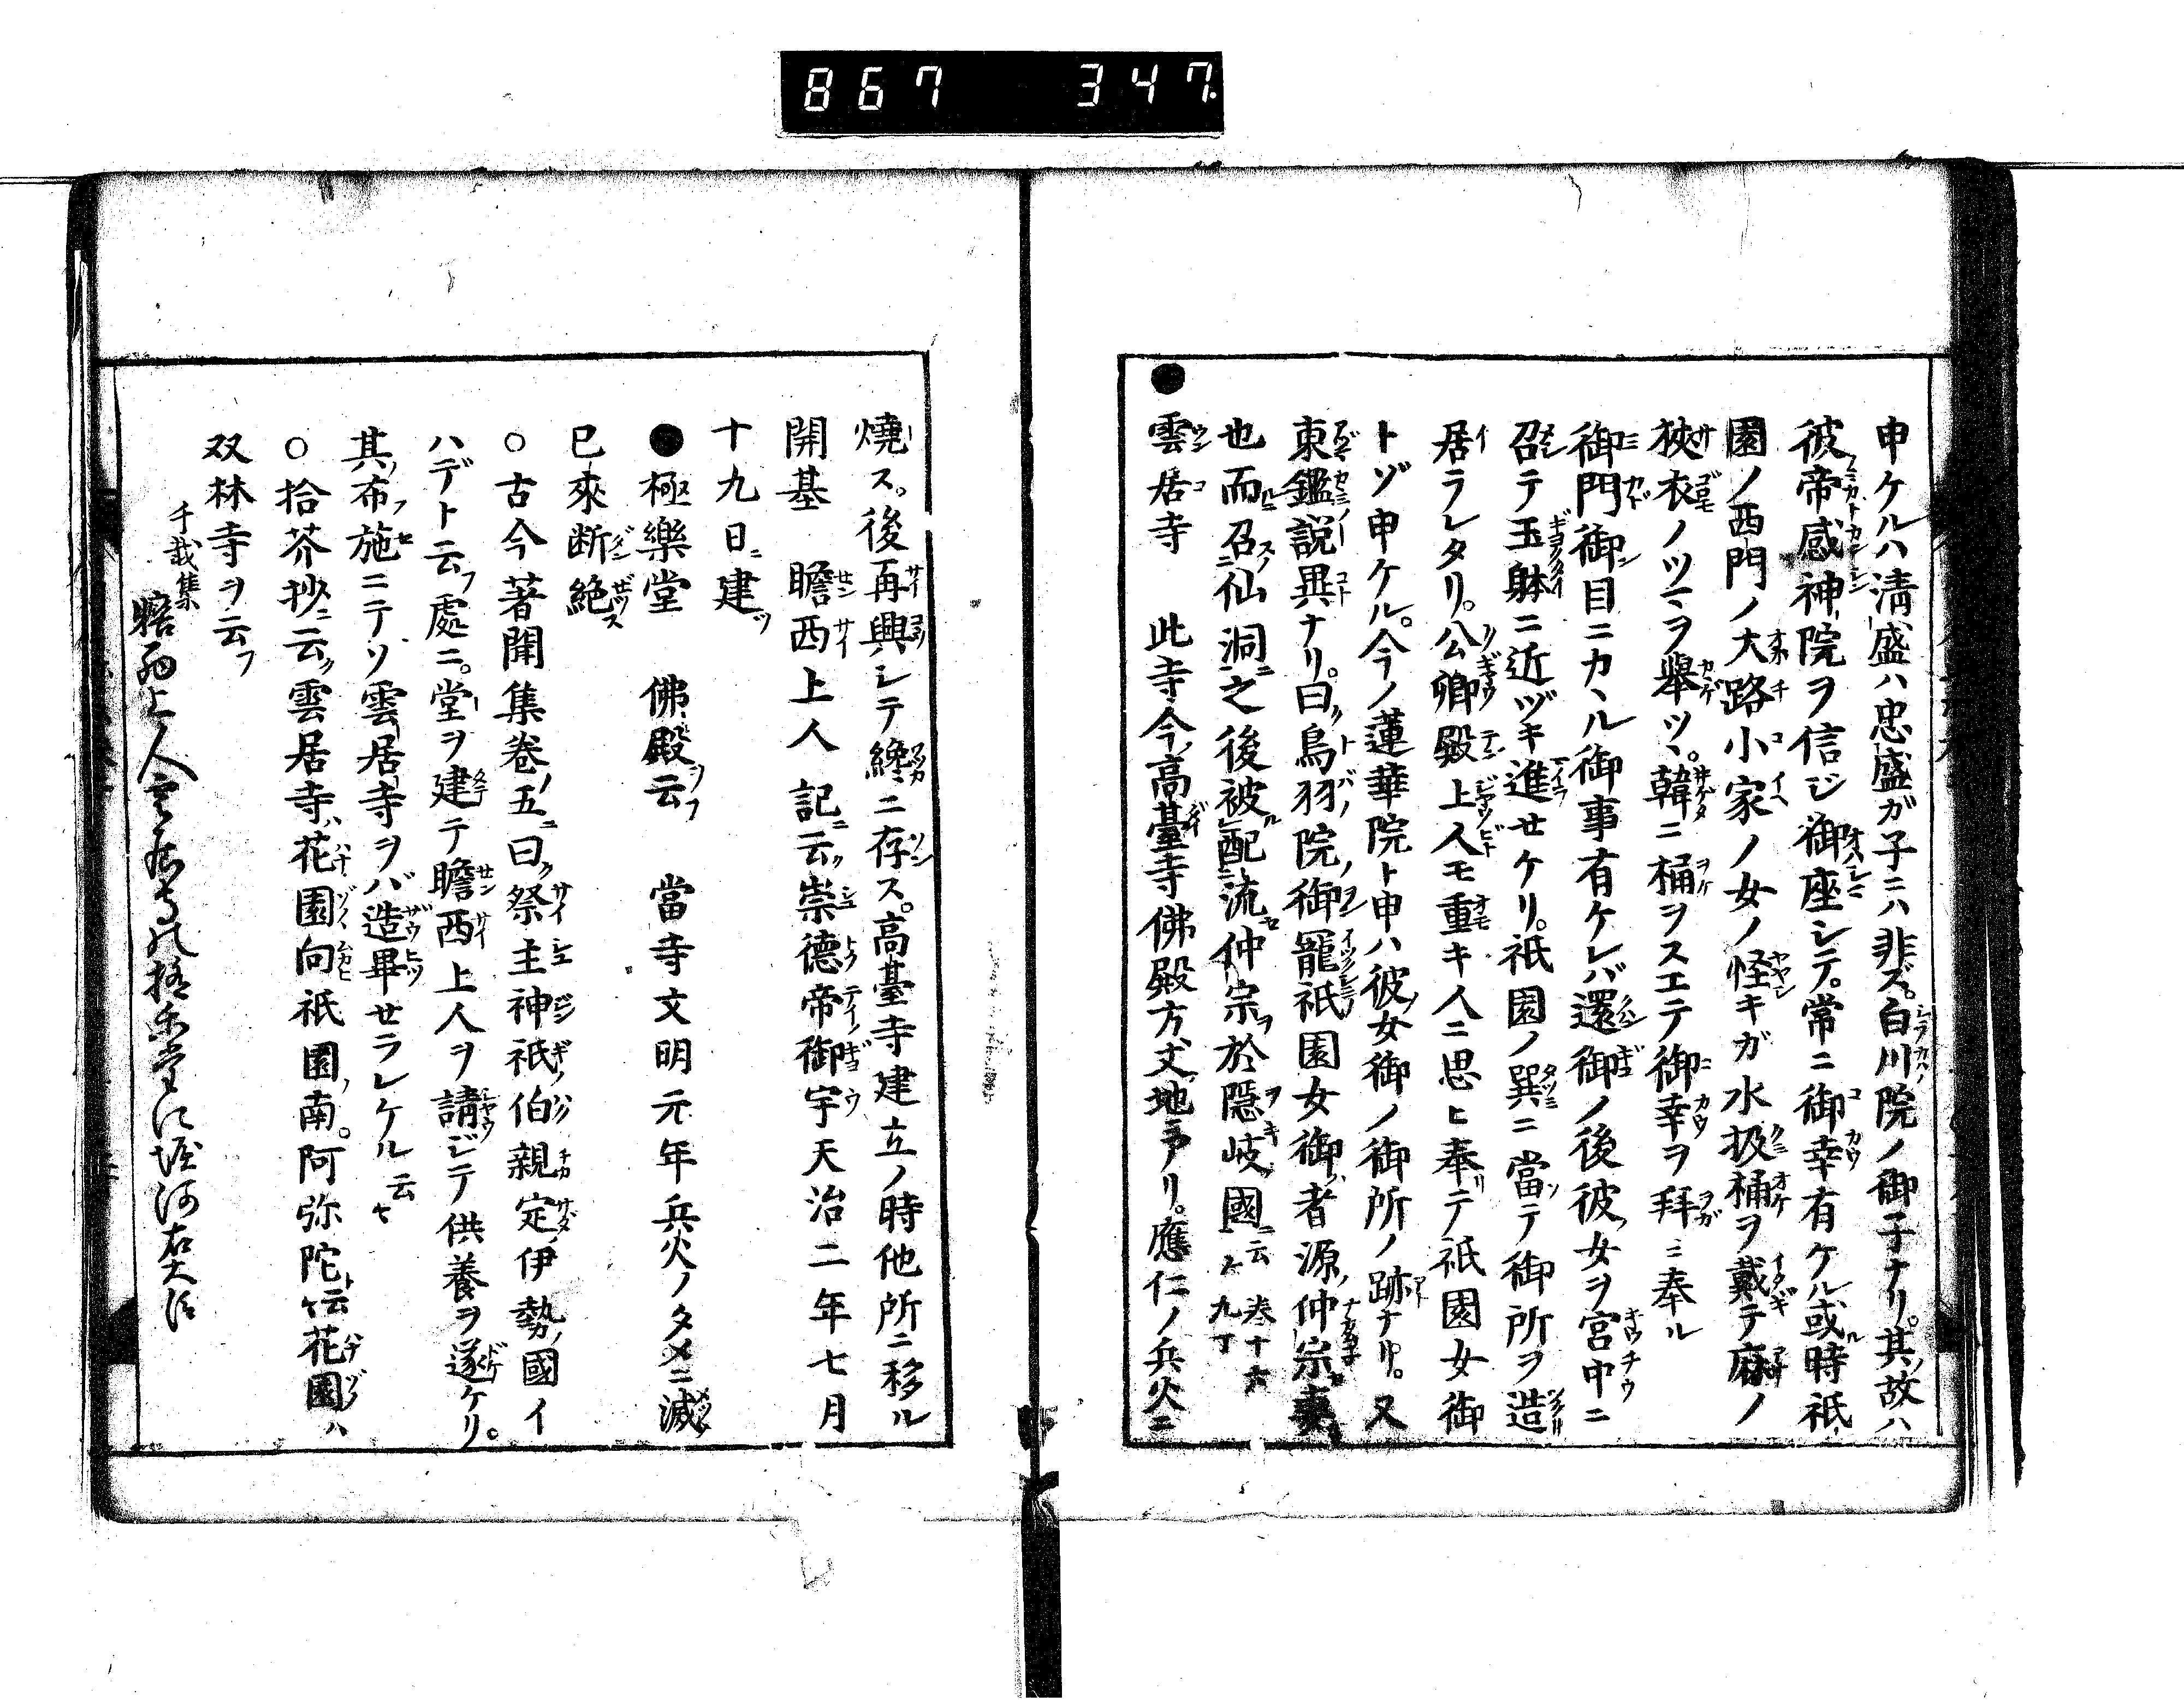 867 347
申ケルハ清盛ハ忠盛ガ子ニハ非ズ。白川院ノ御子ナリ。其故ハ
彼帝感神院ヲ信ジ御座シテ。常ニ御幸有ケル或時祇
園ノ西門ノ大路小家ノ女ノ怪キガ水扱桶ヲ戴テ麻ノ
狹衣ノツマヲ擧ツヽ。韓ニ桶ヲスエテ御幸ヲ拜ミ奉ル
御門御目ニカヽル御事有ケレバ還御ノ後彼女ヲ宮中ニ
召テ玉躰ニ近ヅキ進セケリ。祇園ノ巽ニ當テ御所ヲ造
居ラレタリ。公卿殿上人モ重キ人ニ思ヒ奉テ祇園女御
トゾ申ケル。今ノ蓮華院ト申ハ彼女御ノ御所ノ跡ナリ。又
東鑑説異ナリ。曰鳥羽院御寵祇園女御者源仲宗妻
也而召仙洞之後被配流仲宗於隠岐國云々卷十六九丁
●雲居寺 此寺今高臺寺佛殿方丈地ナリ。應仁ノ兵火ニ
燒ス。後再興シテ纔ニ存ス。高臺寺建立ノ時他所ニ移ル
開基 瞻西上人記云崇德帝御宇天治二年七月
十九日建
●極樂堂 佛殿云 當寺文明元年兵火ノタメニ滅
已來断絶
○古今著聞集卷五曰祭主神祇伯親定伊勢國イ
ハデト云處ニ。堂ヲ建テ瞻西上人ヲ請ジテ供養ヲ遂ケリ。
其布施ニテソ雲居寺ヲバ造畢セラレケル云々
○拾芥抄云雲居寺花園向祇園南。阿弥陀云々花園ハ
双林寺ヲ云フ
千載集
瞻西上人雲居寺の極楽堂に堀河右大臣